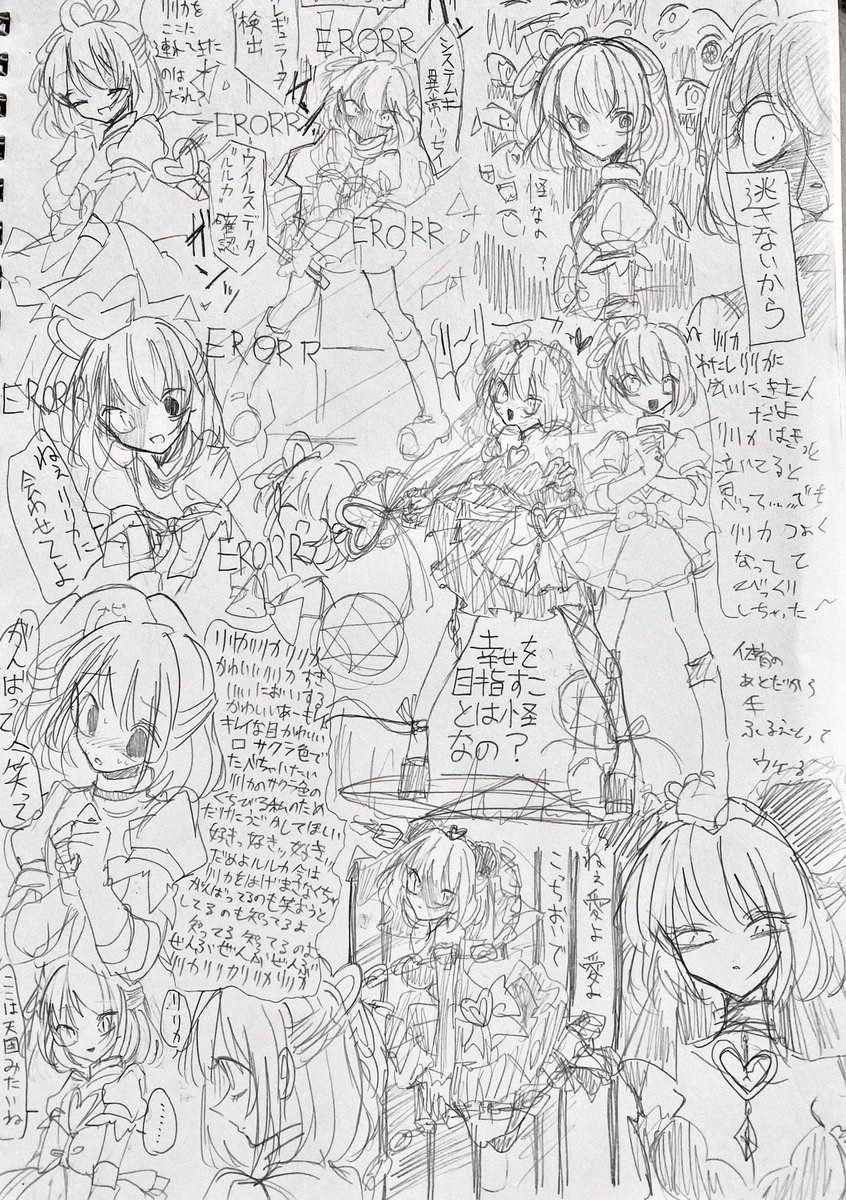 リリカを
ここに
連れてきた
のは
だれ?
イレギュラー
検出
ERORR
システムキ
異常ハッセイ
ERORR
ウイルスデータ
"ルルカ"確認
ERORR
怪なの?
逃さないから
ERORR
ERORR
ねぇリリカに
会わせてよ
ERORR
リリカ
わたしリリカに
会いにきた人
だよ
リリカはきっと
泣いてると
思って……でも
リリカつよく
なってて
びっくり
しちゃった~
体育の
あとだから
手
ふるえちゃって
ウケーる
幸せを
目指すこ
とは怪
なの?
がんばって笑って
リリカリリカリリカ
かわいいリリカすき
いいにおいする
かわいいあーキレイ
キレイな目かわいい
口サクラ色で
たべちゃいたい
リリカのサクラ色の
くちびる私のため
だけにうごかしてほしい
好きっ好きッ好きッ
だめよルルカ今は
リリカをはげまさなくちゃ
がんばってるのも笑おうと
してるのも知ってるよ
知ってる知ってるのよ
ぜんぶぜんぶぜんぶ
リリカリリカリリカ
ねぇ愛よ愛よ
こっちおいで
ここは天国みたいね
……
リリカァ